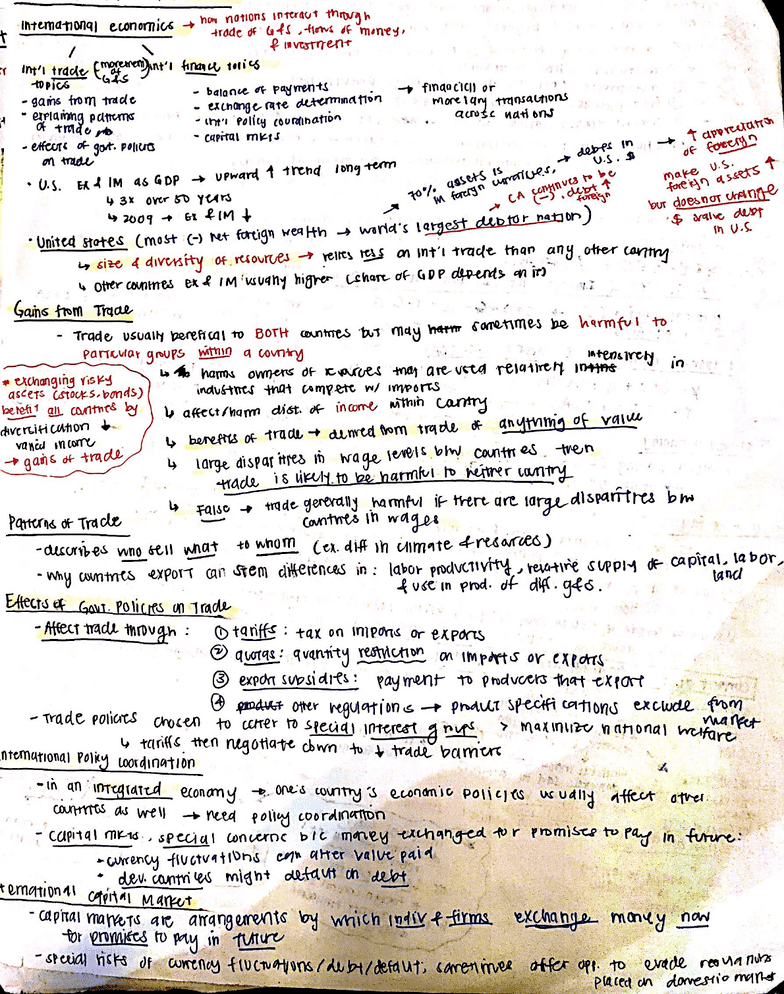 International economics → how nations interact through
trade of G&S, flows of money,
& investment
Int'l trade (movement of G&S)
topics
- gains from trade
- explaining patterns
of trade
- effects of govt. policies
on trade
int'l finance topics
- balance of payments
- exchange rate determination
- int'l policy coordination
- capital mkts
→ financial or
monetary transactions
across nations
• U.S. EX & IM as GDP → upward ↑ trend long term
↳ 3x over 50 years
↳ 2009 → EX & IM ↓
→ 70% assets is
in foreign currencies,
→ debts in
U.S. $
→ ↑ appreciation
of foreign
make U.S.
foreign assets ↑
but does not change
$ value debt
in U.S
→ CA continues to be
(-), debt ↑
foreign
• United States (most (-) net foreign wealth → world's largest debtor nation)
↳ size & diversity of resources → relies less on int'l trade than any other country
↳ other countries EX & IM usually higher (share of GDP depends on it)
Gains from Trade
- Trade usually benefical to BOTH countries but may harm sometimes be harmful to
particular groups within a country
↳ harms owners of resources that are used relatively intensively in
industries that compete w/ imports
↳ affect/harm dist. of income within country
↳ benefits of trade → derived from trade of anything of value
↳ large disparities in wage levels btw countries then
trade is likely to be harmful to neither country
↳ False → trade generally harmful if there are large disparities btw
countries in wages
* exchanging risky
assets (stocks, bonds)
benefit all countries by
diversification ↓
varied income
→ gains of trade
Patterns of Trade
- describes who sell what to whom (ex. diff in climate & resources)
- why countries export can stem differences in: labor productivity, relative supply of capital, labor,
land
& use in prod. of diff. g&s.
Effects of Govt. Policies on Trade
- Affect trade through: ① tariffs: tax on imports or exports
② quotas: quantity restriction on imports or exports
③ export subsidies: payment to producers that export
④ product other regulations → product specifications exclude from
market
- Trade policies chosen to cater to special interest groups > maximize national welfare
↳ tariffs then negotiate down to ↓ trade barriers
nternational Policy Coordination
- in an integrated economy → one's country's economic policies usually affect other
countries as well → need policy coordination
- capital mkts, special concerns b/c money exchanged for promises to pay in future:
- currency fluctuations can alter value paid
• dev. countries might default on debt
ternational Capital Market
- capital markets are arrangements by which indiv & firms exchange money now
for promises to pay in future
- special risks of currency fluctuations/debt/default; sometimes offer opp. to evade regulations
placed on domestic markts